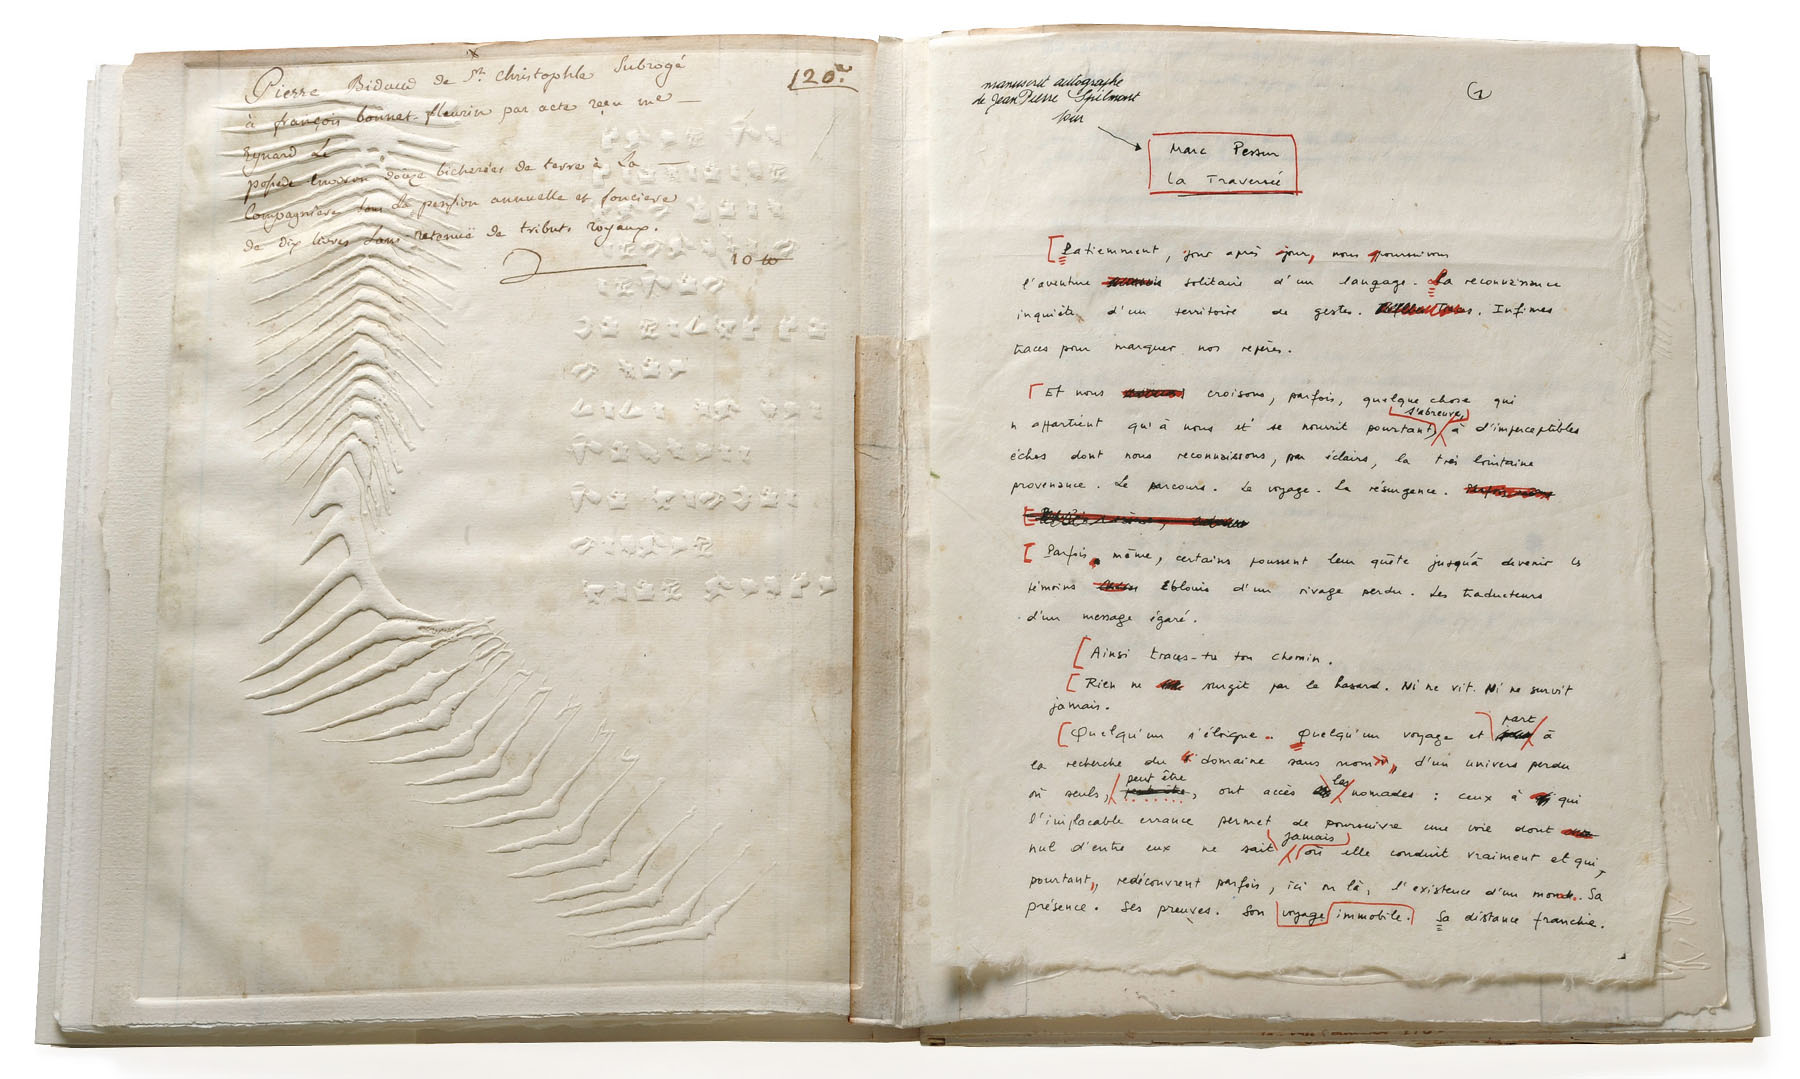 Pierre Bidaud de St. Christophle Subrogé
120e.
à françois bonnet-fleurin par acte reçu me
Eynard Le
possede environ douze bicherées de terre à La
Compagniere sous La pension annuelle et fonciere
de dix livres sans retenuë de tributs royaux.
10
manuscrit autographe
de Jean Pierre Spilmont
1
sur
Marc Pessin
la Traversée
Patiemment, jour après jour, nous poursuivons
l'aventure solitaire d'un langage. La reconnaissance
inquiète d'un territoire de gestes. Infimes
traces pour marquer nos repères.
Et nous croisons, parfois, quelque chose qui
s'abreuve,
n'appartient qu'à nous et se nourrit pourtant, à d'imperceptibles
échos dont nous reconnaissons, par éclairs, la très lointaine
provenance. Le parcours. Le voyage. La résurgence.
Parfois même, certains poussent leur quête jusqu'à devenir les
témoins éblouis d'un rivage perdu. Les traducteurs
d'un message égaré.
Ainsi traces-tu ton chemin.
Rien ne surgit par le hasard. Ni ne vit. Ni ne survit
jamais.
part
Quelqu'un s'éloigne. Quelqu'un voyage et à
la recherche du "domaine sans nom", d'un univers perdu
peut être les
où seuls, , ont accès nomades : ceux à qui
l'implacable errance permet de poursuivre une voie dont
jamais
nul d'entre eux ne sait où elle conduit vraiment et qui,
pourtant, redécouvrent parfois, ici ou là, l'existence d'un monde. Sa
présence. Ses preuves. Son voyage immobile. Sa distance franchie.